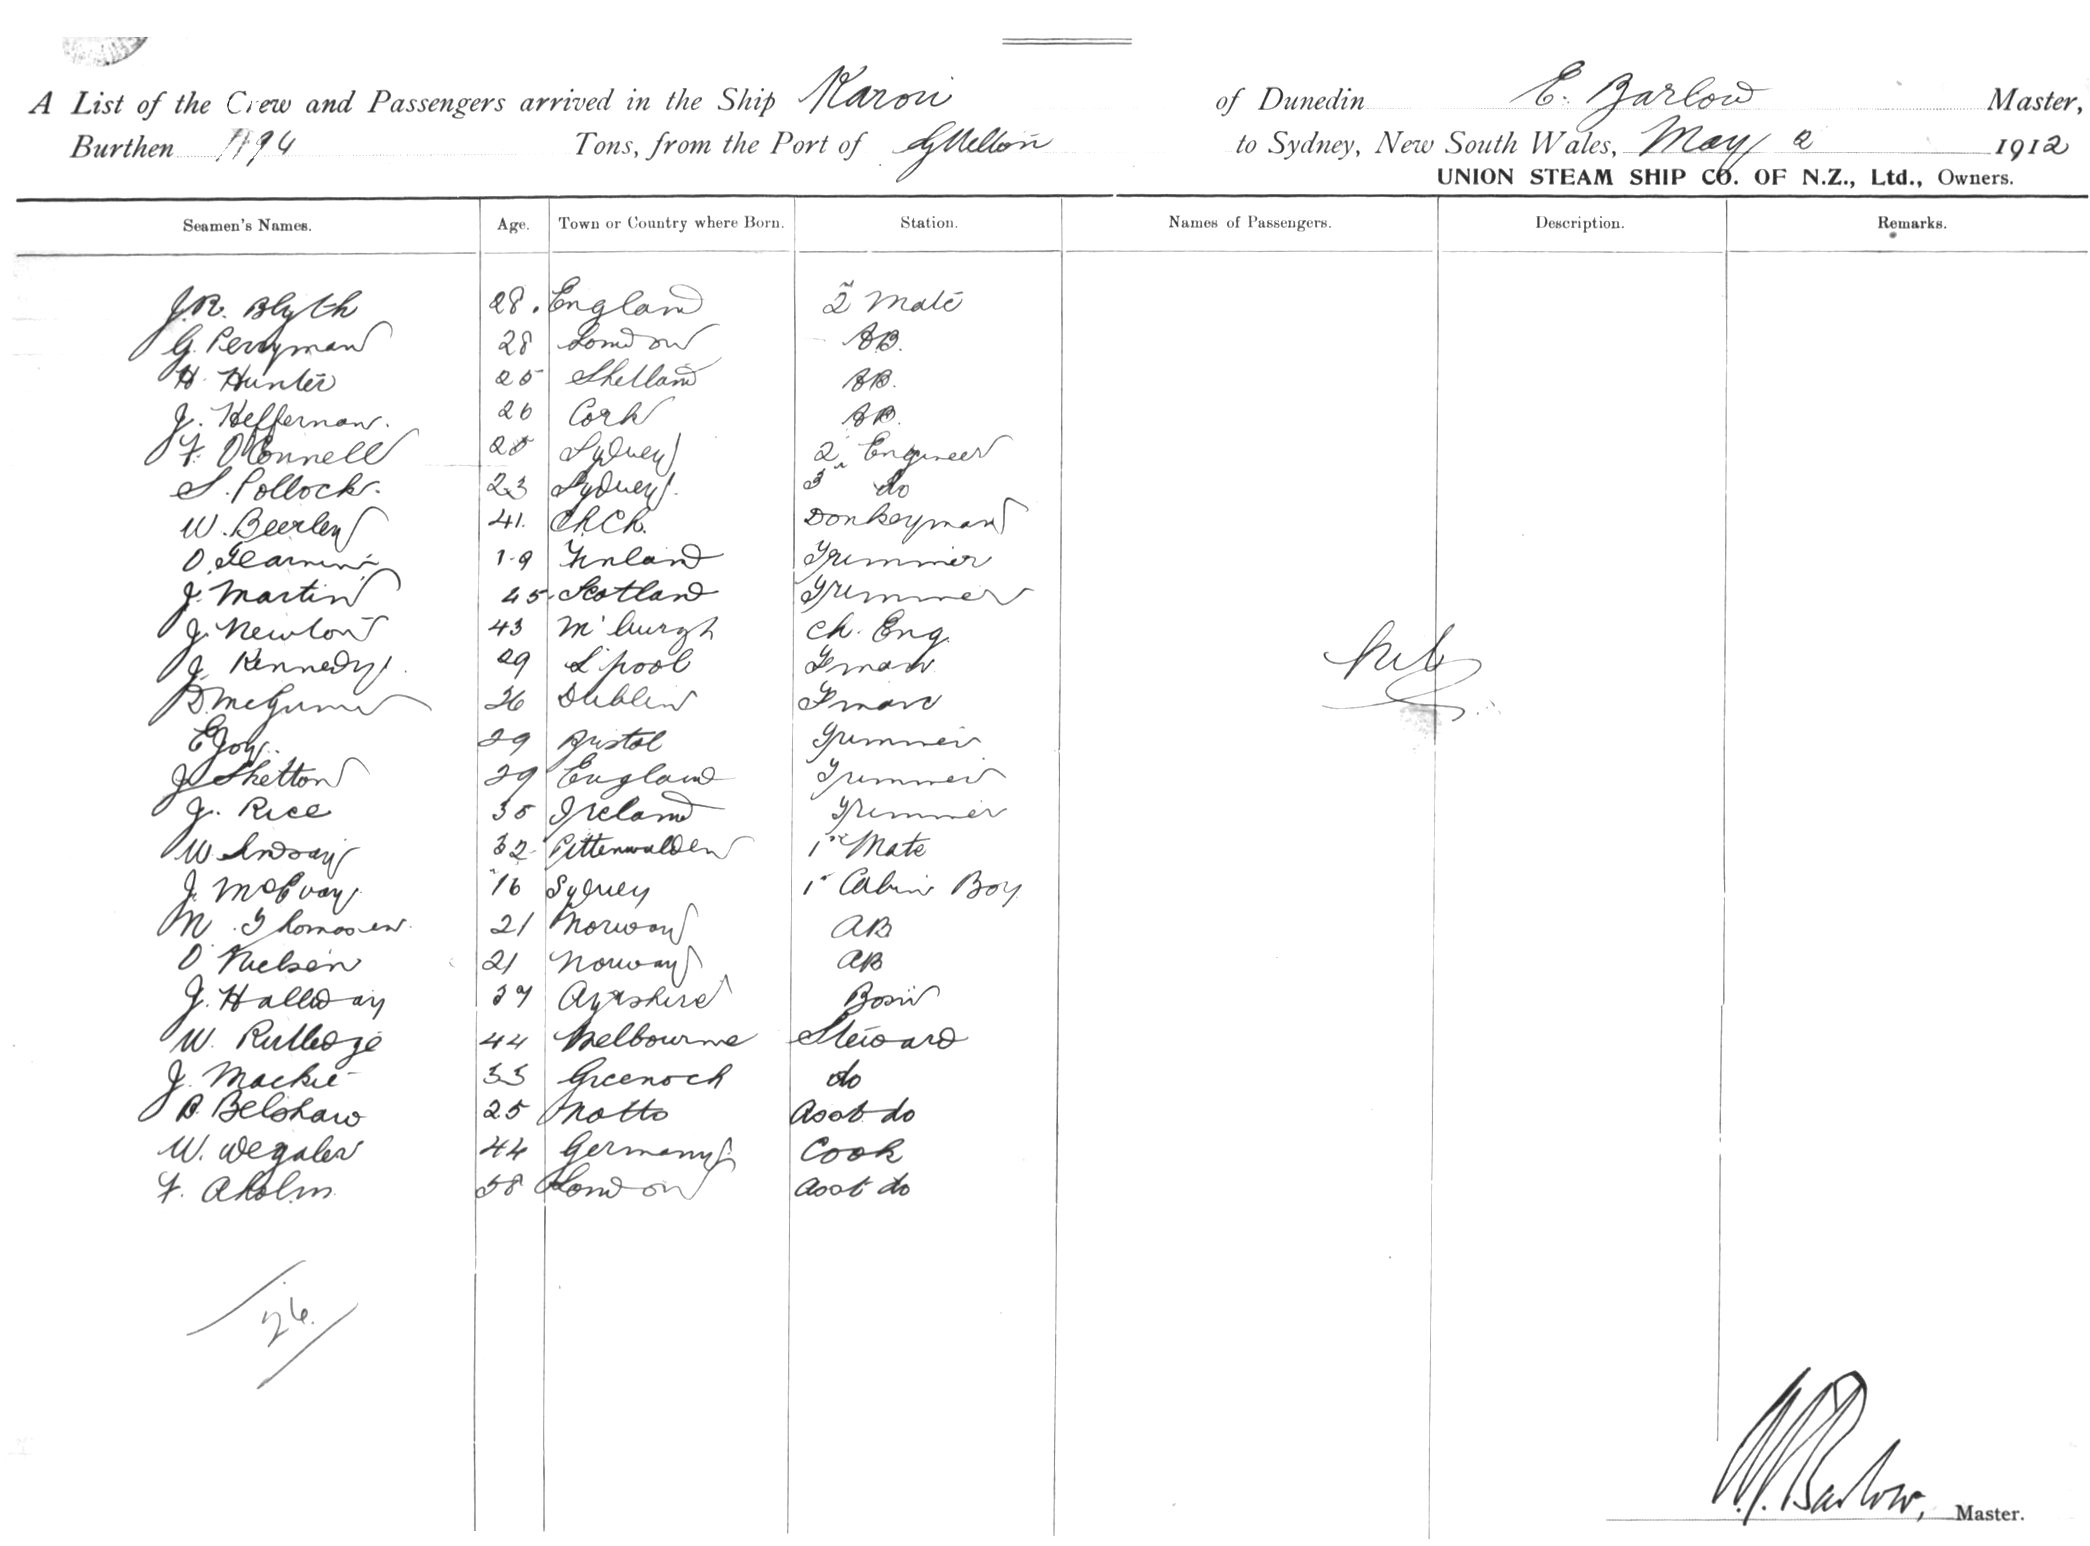 A List of the Crew and Passengers arrived in the Ship Karori of Dunedin E. Barlow Master,
Burthen Tons, from the Port of to Sydney, New South Wales, May 2 1912
UNION STEAM SHIP CO. OF N.Z., Ltd., Owners.
Seamen's Names. Age. Town or Country where Born. Station. Names of Passengers. Description. Remarks.
J.R. Blyth 28. England 2 Mate
G. Perryman 28 London AB.
H. Hunter 25 Shetland AB.
J. Heffernan. 26 Cork AB.
F. O'Connell 25 Sydney 2n Engineer
S. Pollock. 23 Sydney. 3 do
W. Beerley 41. Ch.Ch. Donkeyman
O. 19 Finland Trimmer
J. Martin 45. Scotland Trimmer
J. Newton 43 M'burgh Ch. Eng.
J. Kennedy. 29 L'pool Fman
D. McGunn 26 Dublin Fman
E Joy. 29 Bristol Trimmer
J Skelton 29 England Trimmer
J. Rice 35 Ireland Trimmer
W Lindsay 32 1st Mate
J. McEvoy. 16 Sydney 1st Cabin Boy
M. Thomasen. 21 Norway AB
O Nielsen 21 Norway AB
J. Halliday 37 Ayrshire Bosn
W. Rutledge 44 Melbourne Steward
J. Mackie 33 Greenock do
B. Belshaw 25 Notts Asst do
W. Wegaler 44 Germany Cook
F. Aholm 58 London Asst do
Nil
26.
Barlow, Master.